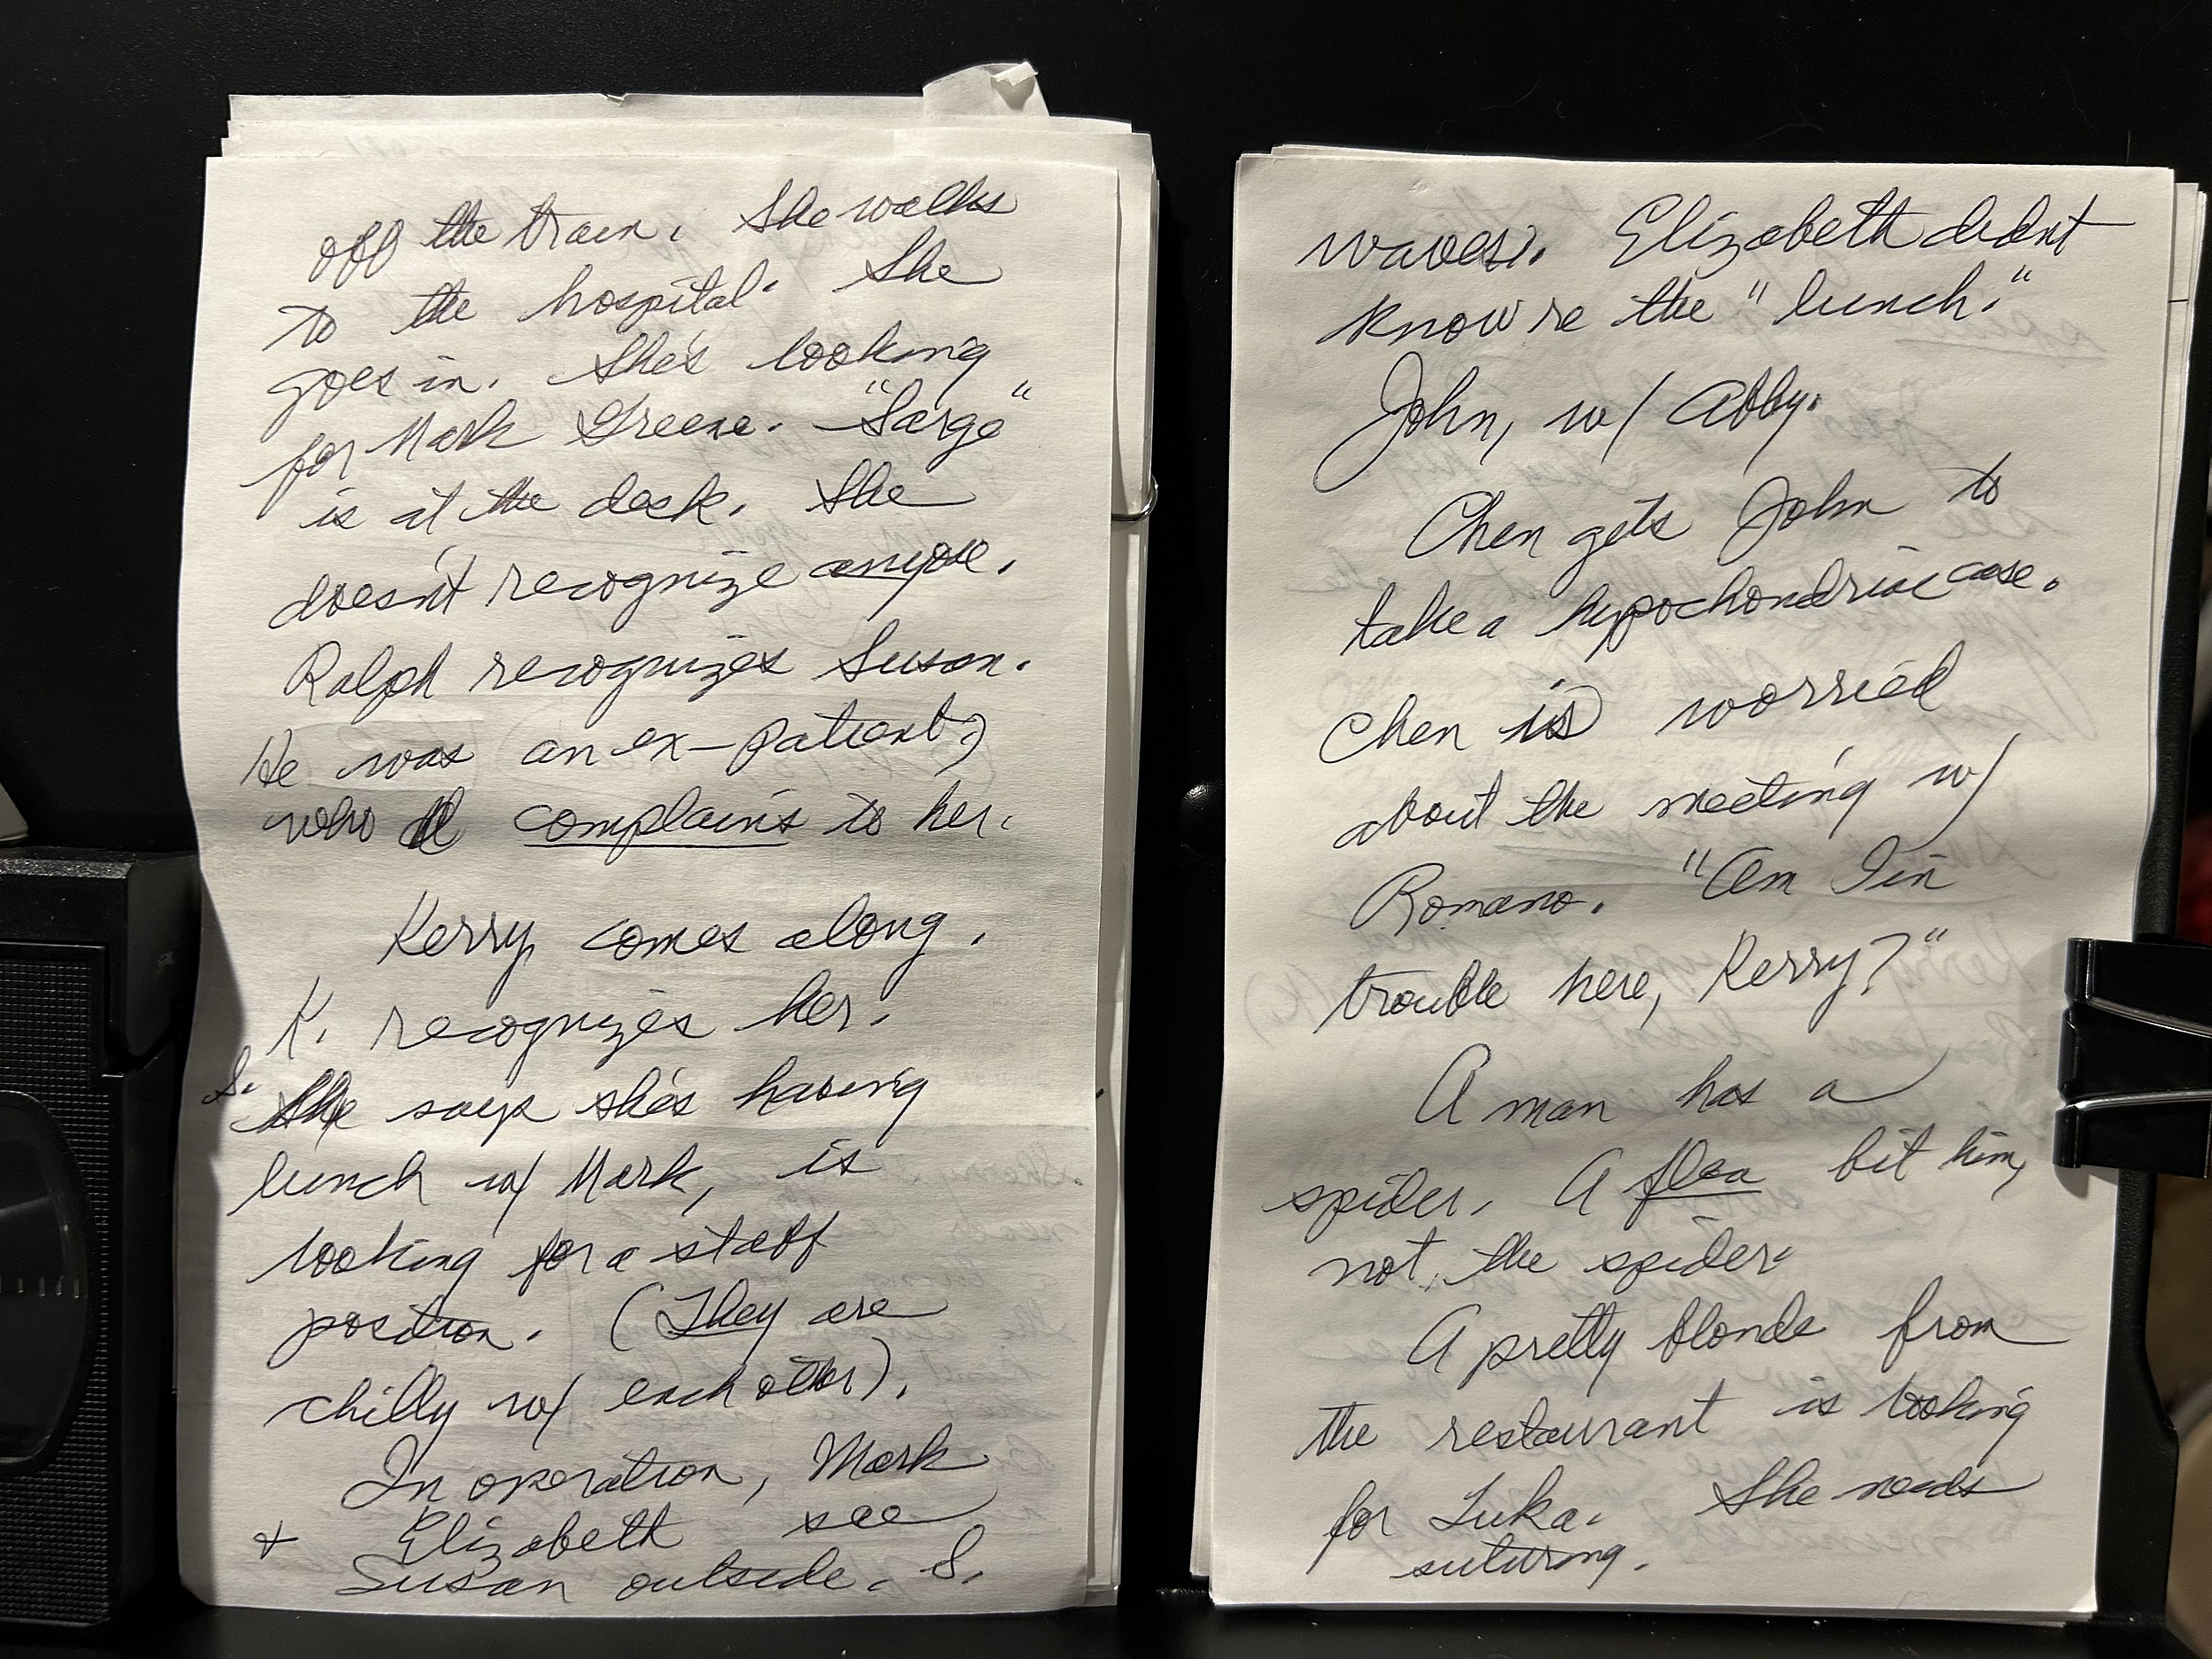 off the train. She walks
to the hospital. She
goes in. She's looking
for Mark Greene. "Sarge"
is at the desk. She
doesn't recognize anyone.
Ralph recognizes Susan.
He was an ex-patient,
who complains to her.
Kerry comes along.
K. recognizes her.
S. She says she's having
lunch w/ Mark, is
looking for a staff
position. (They are
chilly w/ each other).
In operation, Mark
+ Elizabeth see
Susan outside. S.
waves. Elizabeth didnt
know re the "lunch."
John, w/ Abby.
Chen gets John to
take a hypochondriac case.
Chen is worried
about the meeting w/
Romano. "Am I in
trouble here, Kerry?"
A man has a
spider. A flea bit him,
not the spider.
A pretty blonde from
the restaurant is looking
for Luka. She needs
suturing.